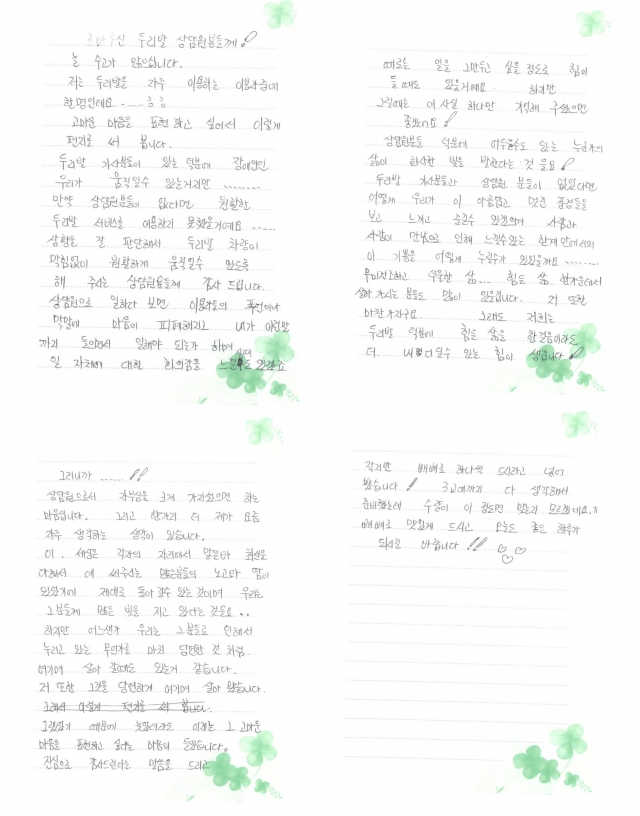 고마우신 두리발 상담원분들께!
늘 수고가 많으십니다.
저는 두리발을 자주 이용하는 이용자중에
한명인데요......ㅎㅎ
고마운 마음을 표현하고 싶어서 이렇게
편지를 써 봅니다.
두리발 기사분들이 있는 덕분에 장애인인
우리가 움직일수 있는거지만........
만약 상담원분들이 없다면 원활한
두리발 서비스를 이용하지 못했을거예요.....
상황을 잘 판단해서 두리발 차량이
막힘없이 원활하게 움직일수 있도록
해 주시는 상담원분들께 감사 드립니다.
상담원으로 일하다 보면 이용자들의 폭언이나
막말에 마음이 피폐해지고 내가 이런말
까지 들어면서 일해야 되는가 하며
일 자체에 대한 회의감을 느낄때도 있겠죠
때로는 일을 그만두고 싶을 정도로 힘이
들때도 있을거예요. 하지만
그럴때는 이 사실 하나만 기억해 주셨으면
좋겠어요!
상담원분들 덕분에 어두울수도 있는 누군가의
삶이 화사한 빛을 발한다는 것을요!
두리발 기사분들과 상담원 분들이 없었다면
어떻게 우리가 이 아름답고 멋진 풍경들을
보고 느끼고 숨쉴수 있겠으며 사람과
사람이 만남으로 인해 느낄수있는 한계 안에서의
이 기쁨을 어떻게 누릴수가 있었을까요.......
무미건조하고 우울한 삶... 힘든 삶 한가운데서
살아 가시는 분들도 많이 있을겁니다. 저 또한
마찬가지구요. 그래도 저희는
두리발 덕분에 힘든 삶을 한걸음이라도
더 내 디딜수 있는 힘이 생깁니다!
그러니까......!!
상담원으로서 자부심을 크게 가지셨으면 하는
마음입니다. 그리고 한가지 더 제가 요즘
자주 생각하는 생각이 있습니다.
이. 세상은 각자의 자리에서 맡은바 최선을
다해서 애 써주시는 많은분들의 노고와 땀이
있었기에 제대로 돌아갈수 있는 것이며 우리는
그분들께 많은 빚을 지고 있다는 것을요..
하지만 어느샌가 우리는 그분들로 인해서
누리고 있는 무언가를 마치 당연한 것 처럼
여기며 살아 갈때도 있는거 같습니다.
저 또한 그것을 당연하게 여기며 살아 왔습니다.
그래서 이렇게 편지를 써 봅니다.
그랬었기 때문에 늦었더라도 이제는 그 고마운
마음을 표현하고 싶다는 마음이 들었습니다.
진심으로 감사드린다는 말씀을 드리고
작지만 빼빼로 하나씩 드시라고 넣어
봤습니다! 3교대까지 다 생각해서
준비했는데 수량이 이 정도면 맞는지 모르겠네요.
빼빼로 맛있게 드시고 오늘도 좋은 하루가
되시길 바랍니다!!